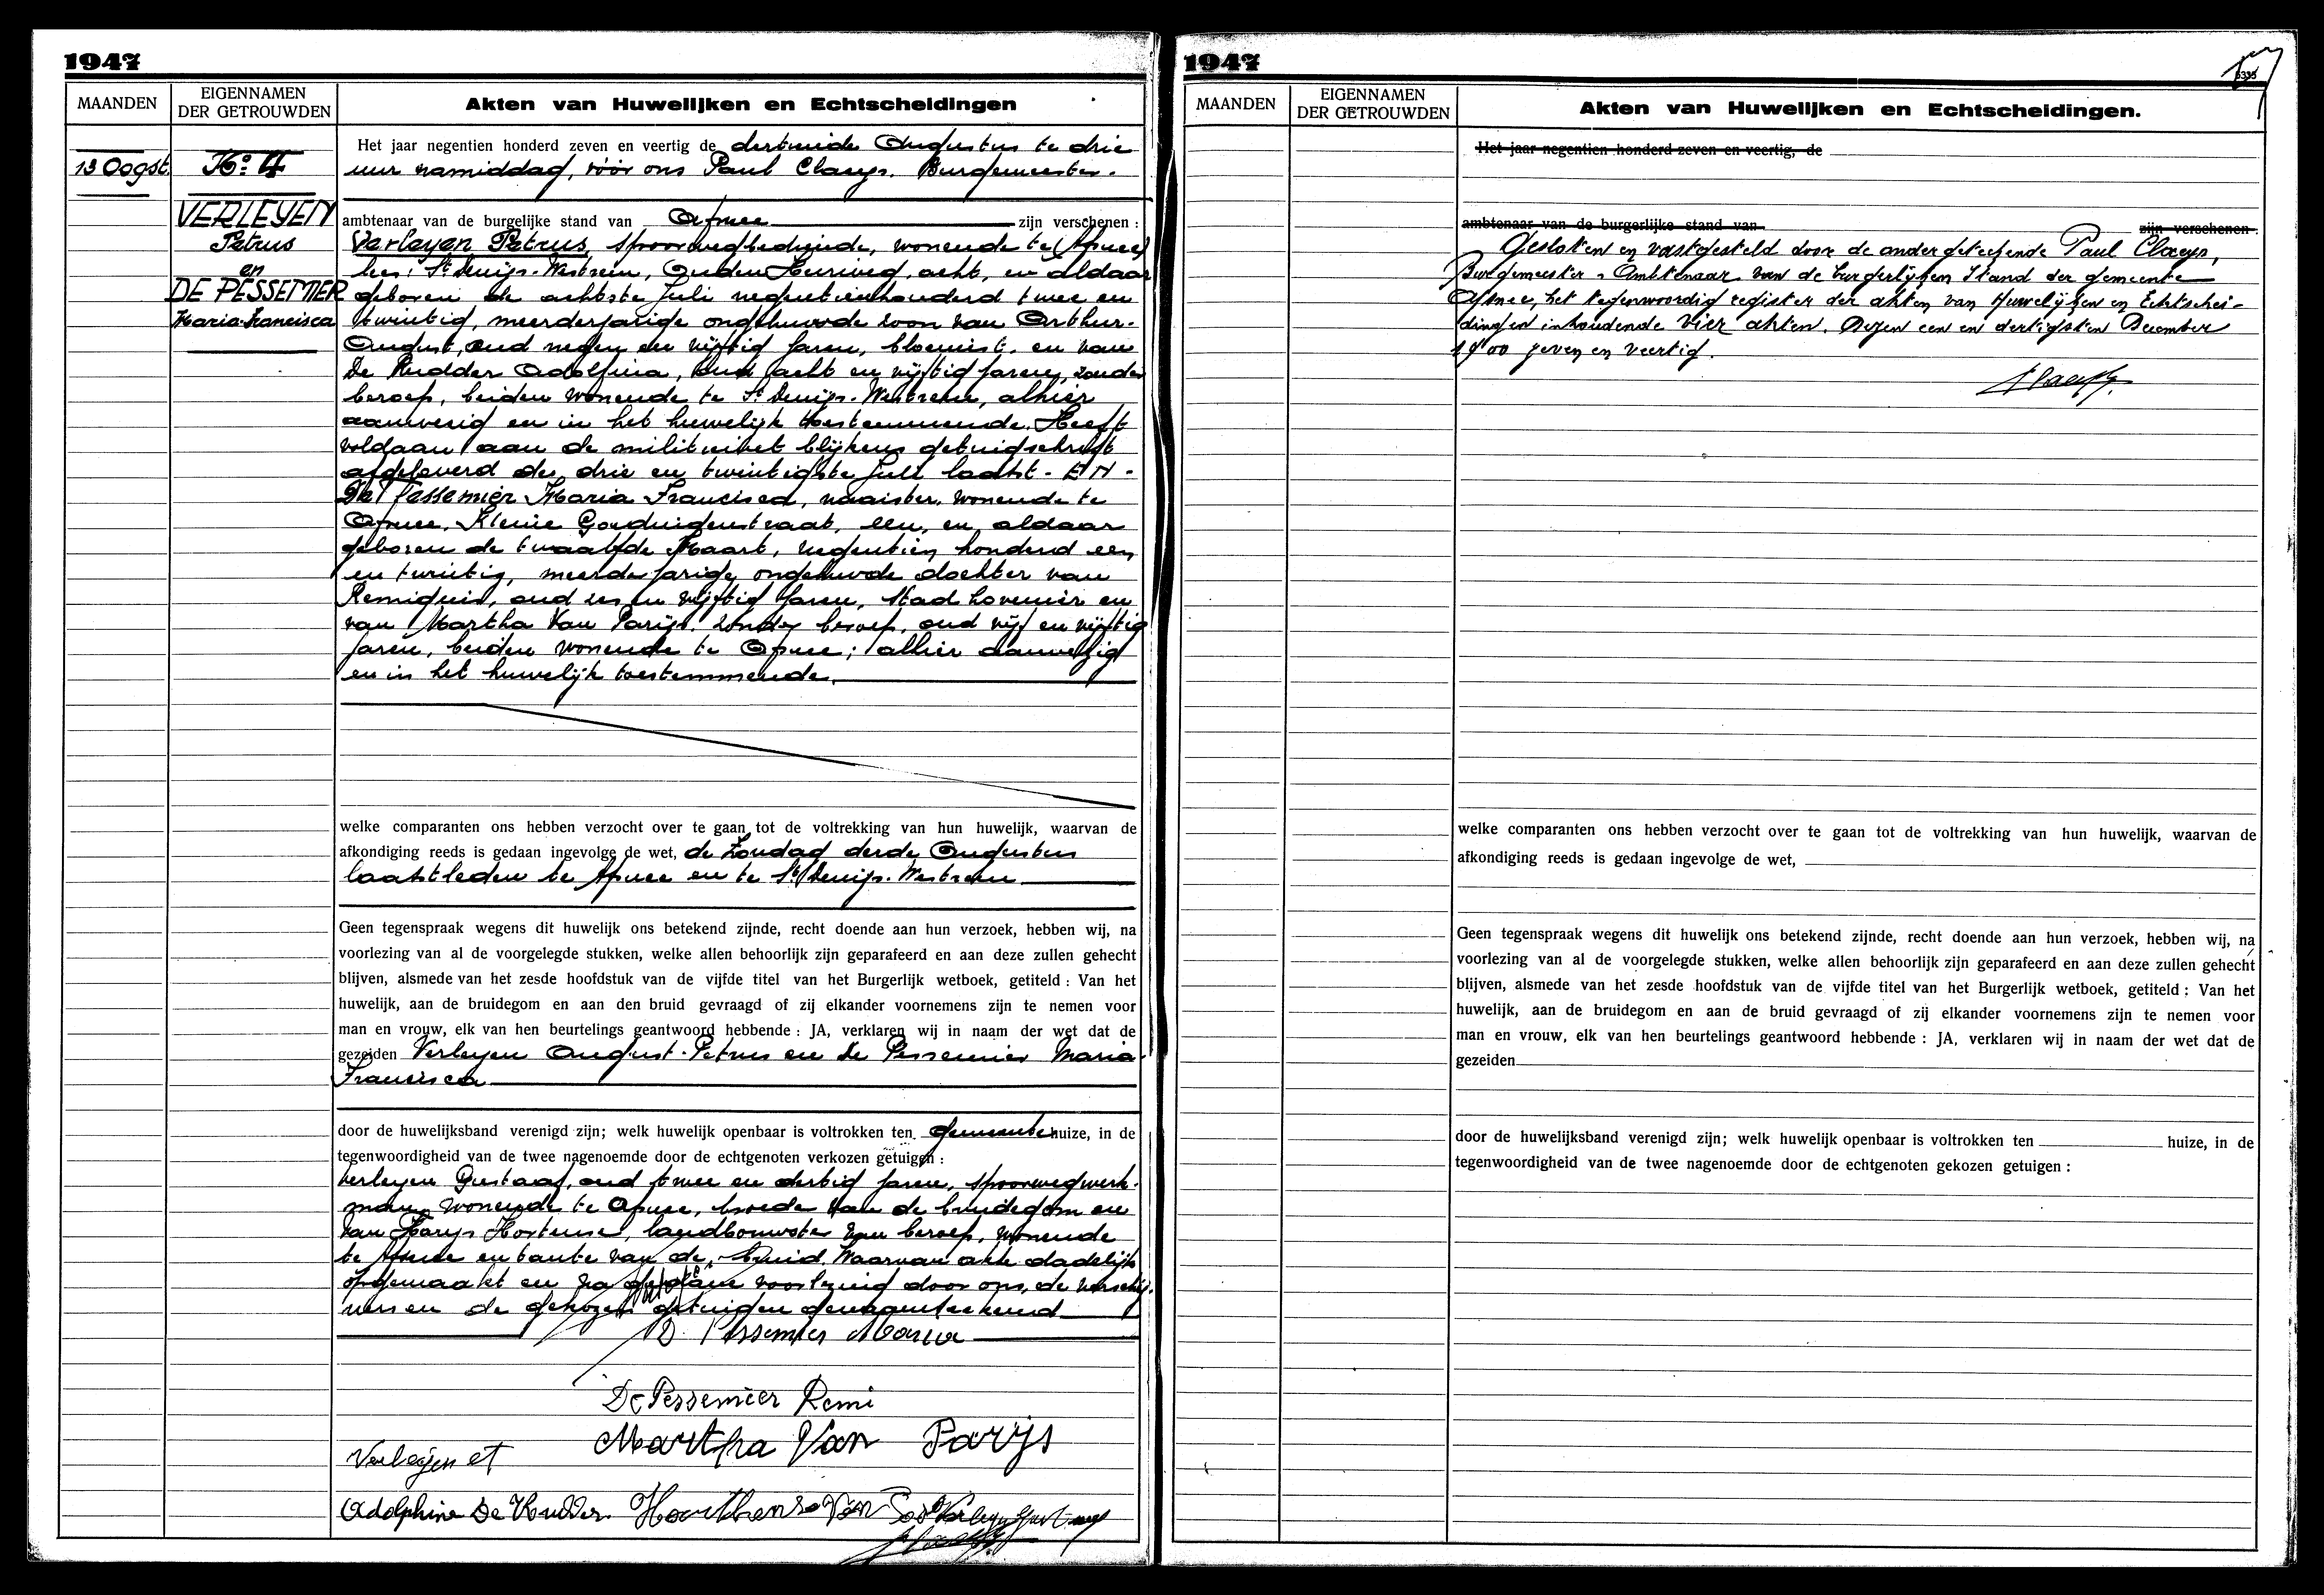 1947
MAANDEN
EIGENNAMEN
DER GETROUWDEN
Akten van Huwelijken en Echtscheidingen
13 Oogst.
No 4
VERLEYEN
Petrus
en
DE PESSEMIER
Maria-Francisca
Het jaar negentien honderd zeven en veertig de dertiende Augustus te drie
uur namiddag, vóór ons Paul Claeys. Burgemeester.
ambtenaar van de burgelijke stand van Afsnee zijn verschenen :
Verleyen Petrus, spoorwegbediende, wonende te (Afsnee)
lees: St Denijs-Westrem, Ouden Heerweg, acht, en aldaar
geboren de achtste Juli negentienhonderd twee en
twintig, meerderjarige ongehuwde zoon van Arthur-
August, oud negen en vijftig jaren, bloemist, en van
De Rudder Adolfina, oud acht en vijftig jaren, zonder
beroep, beiden wonende te St Denijs-Westrem, alhier
aanwezig en in het huwelijk toestemmende. Heeft
voldaan aan de militiewet blijkens getuigschrift
afgeleverd de drie en twintigste Juli laatst - EN -
De Pessemier Maria Francisca, naaister, wonende te
Afsnee, Kleine Goedingenstraat, een, en aldaar
geboren de twaalfde Maart, negentien honderd een
en twintig, meerderjarige ongehuwde dochter van
Remiguis, oud zes en vijftig jaren, stad hovenier en
van Martha Van Parijs, zonder beroep, oud vijf en vijftig
jaren, beiden wonende te Afsnee; alhier aanwezig
en in het huwelijk toestemmende.
welke comparanten ons hebben verzocht over te gaan tot de voltrekking van hun huwelijk, waarvan de
afkondiging reeds is gedaan ingevolge de wet, de Zondag derde Augustus
laatstleden te Afsnee en te St Denijs-Westrem
Geen tegenspraak wegens dit huwelijk ons betekend zijnde, recht doende aan hun verzoek, hebben wij, na
voorlezing van al de voorgelegde stukken, welke allen behoorlijk zijn geparafeerd en aan deze zullen gehecht
blijven, alsmede van het zesde hoofdstuk van de vijfde titel van het Burgerlijk wetboek, getiteld : Van het
huwelijk, aan de bruidegom en aan den bruid gevraagd of zij elkander voornemens zijn te nemen voor
man en vrouw, elk van hen beurtelings geantwoord hebbende : JA, verklaren wij in naam der wet dat de
gezeiden Verleyen August-Petrus en De Pessemier Maria-
Francisca
door de huwelijksband verenigd zijn; welk huwelijk openbaar is voltrokken ten gemeentenhuize, in de
tegenwoordigheid van de twee nagenoemde door de echtgenoten verkozen getuigen :
Verleyen Gustaaf, oud twee en dertig jaren, spoorwegwerk-
man, wonende te Afsnee, broeder van de bruidegom en
Van Parijs Hortense, landbouwster van beroep, wonende
te Afsnee en tante van de bruid. Waarvan akte dadelijk
opgemaakt en na gedane voorlezing door ons, de verschij-
ners en de gekozen getuigen
De Pessemier Maria
De Pessemier Remi
Martha Van Parijs
Verleyen et
Adolphine De Rudder. Hoorthense Van Par Verleyen Gustaaf
1947
5335
MAANDEN
EIGENNAMEN
DER GETROUWDEN
Akten van Huwelijken en Echtscheidingen.
Het jaar negentien honderd zeven en veertig, de
ambtenaar van de burgerlijke stand van zijn verschenen :
Gesloten en vastgesteld door de ondergetekende Paul Claeys,
Burgemeester - Ambtenaar van de burgerlijken Stand der gemeente
Afsnee, het tegenwoordig register der akten van Huwelijken en Echtschei-
dingen inhoudende vier akten. Dezen een en dertigsten December
1900 zeven en veertig.
welke comparanten ons hebben verzocht over te gaan tot de voltrekking van hun huwelijk, waarvan de
afkondiging reeds is gedaan ingevolge de wet,
Geen tegenspraak wegens dit huwelijk ons betekend zijnde, recht doende aan hun verzoek, hebben wij, na
voorlezing van al de voorgelegde stukken, welke allen behoorlijk zijn geparafeerd en aan deze zullen gehecht
blijven, alsmede van het zesde hoofdstuk van de vijfde titel van het Burgerlijk wetboek, getiteld : Van het
huwelijk, aan de bruidegom en aan de bruid gevraagd of zij elkander voornemens zijn te nemen voor
man en vrouw, elk van hen beurtelings geantwoord hebbende : JA, verklaren wij in naam der wet dat de
gezeiden
door de huwelijksband verenigd zijn; welk huwelijk openbaar is voltrokken ten huize, in de
tegenwoordigheid van de twee nagenoemde door de echtgenoten gekozen getuigen :